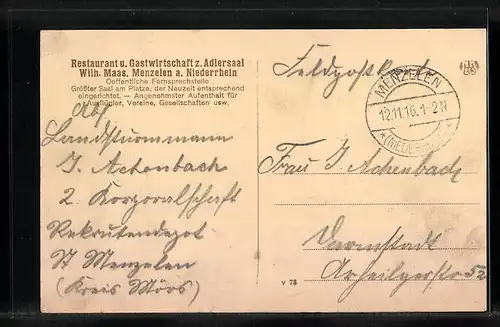 Restaurant u. Gastwirtschaft z. Adlersaal
Wilh. Maas, Menzelen a. Niederrhein
Oeffentliche Fernsprechstelle
Größter Saal am Platze, der Neuzeit entsprechend
eingerichtet. — Angenehmster Aufenthalt für
Ausflügler, Vereine, Gesellschaften usw.
Feldpostkarte
MENZELEN
12.11.16.1-2N
* (NIEDERRHEIN) *
Abs.
Landsturmmann
J. Achenbach
2. Korporalschaft
Rekrutendepot
Menzelen
(Kreis Mörs)
Frau J. Achenbach
Darmstadt
Arheilgerstr 52
v 78